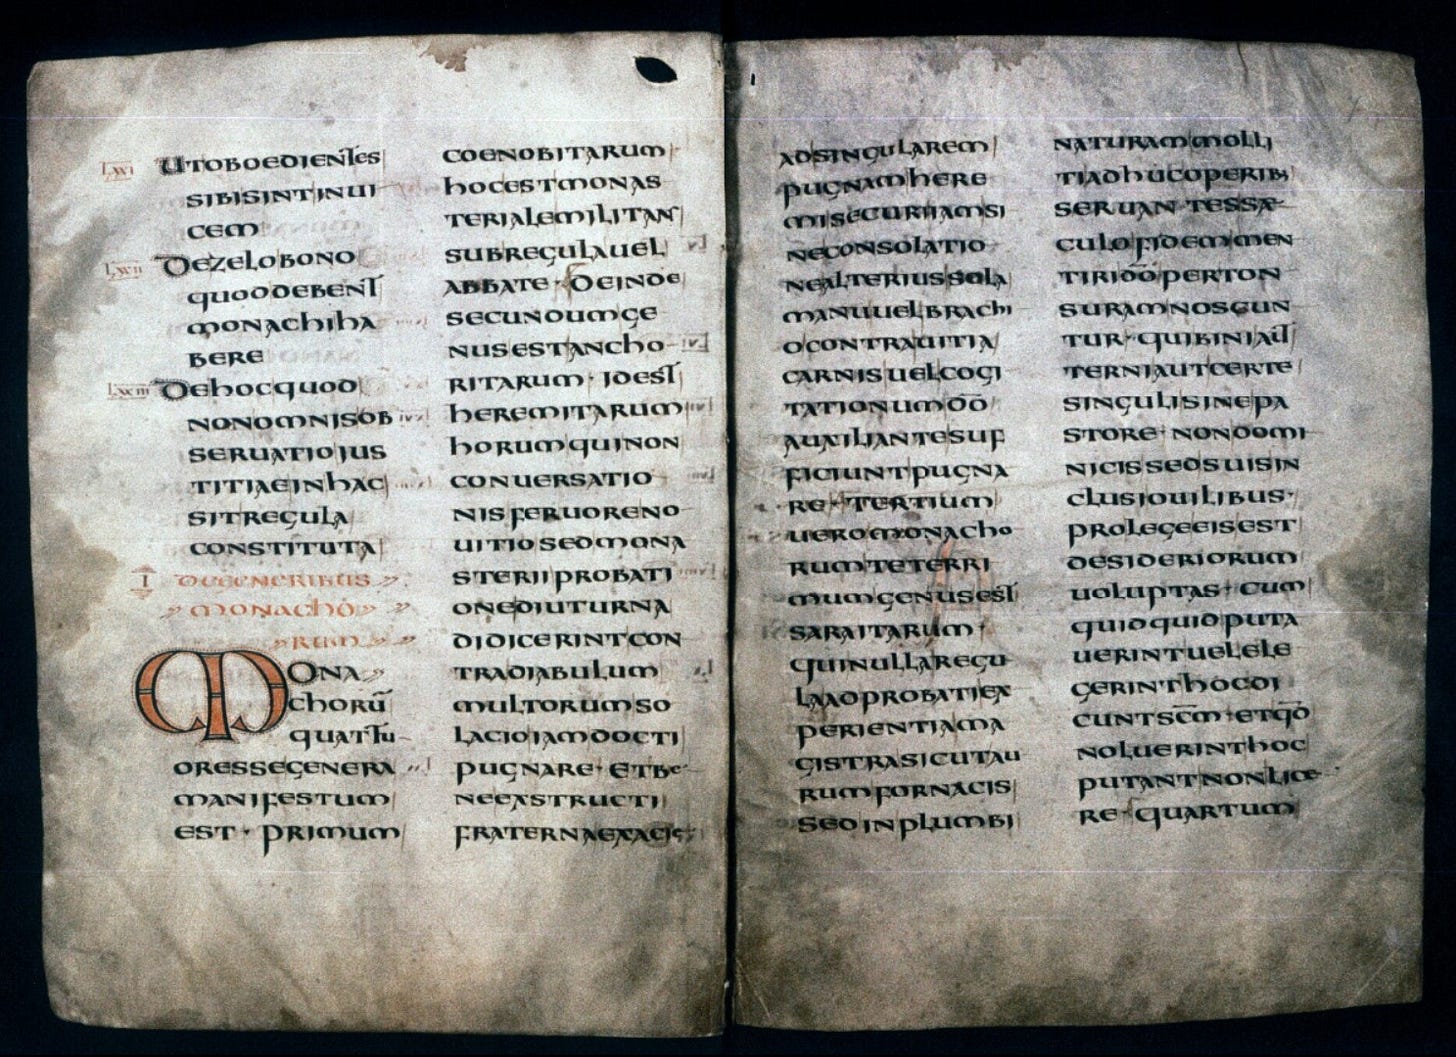 LXXI UTOBOEDIENTES
SIBISINTINUI
CEM
LXXII DEZELOBONO
QUODDEBENT
MONACHIHA
BERE
LXXIII DEHOCQUOD
NONOMNISOB
SERUATIOIUS
TITIAEINHAC
SITREGULA
CONSTITUTA
I DEGENERIBUS
MONACHO
RUM
MONA
CHORŪ
QUATTU
ORESSEGENERA
MANIFESTUM
EST · PRIMUM
COENOBITARUM
HOCESTMONAS
TERIALEMILITANS
SUBREGULAUEL
ABBATE · DEINDE
SECUNDUMGE
NUSESTANCHO
RITARUM · IDEST
HEREMITARUM
HORUMQUINON
CONUERSATIO
NISFERUORENO
UITIOSEDMONA
STERIIPROBATI
ONEDIUTURNA
DIDICERINTCON
TRADIABULUM
MULTORUMSO
LACIOIAMDOCTI
PUGNARE · ETBE
NEEXSTRUCTI
FRATERNAEXACIE
ADSINGULAREM
PUGNAMHERE
MISECURIIAMSI
NECONSOLATIO
NEALTERIUSSOLA
MANUUELBRACHI
OCONTRAUITIA
CARNISUELCOGI
TATIONUMD̄Ō
AUXILIANTESUF
FICIUNTPUGNA
RE · TERTIUM
UEROMONACHO
RUMTETERRI
MUMGENUSEST
SARAITARUM ·
QUINULLAREGU
LAADPROBATIEX
PERIENTIAMA
GISTRASICUTAU
RUMFORNACIS
SEDINPLUMBI
NATURAMMOLLI
TIADHUCOPERIB;
SERUANTESSAE
CULOFIDEMMEN
TIRID̄ŌPERTON
SURAMNOSCUN
TUR · QUIBINIAUT
TERNIAUTCERTE
SINGULISINEPA
STORE · NONDOMI
NICISSEDSUISIN
CLUSIOUILIBUS ·
PROLEGEEISEST
DESIDERIORUM
UOLUPTAS · CUM
QUIDQUIDPUTA
UERINTUELELE
GERINTHOCDI
CUNTSC̄M · ETQD̄
NOLUERINTHOC
PUTANTNONLICE
RE · QUARTUM